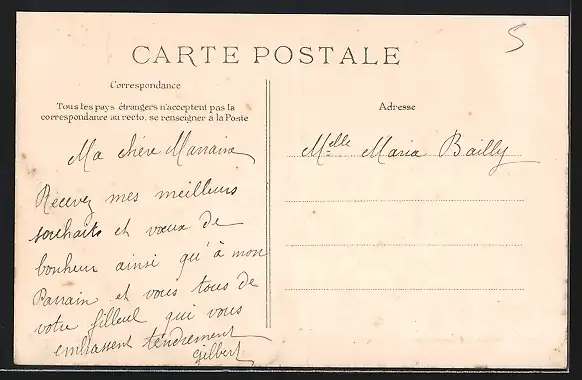 5
CARTE POSTALE
Correspondance
Tous les pays étrangers n'acceptent pas la
correspondance au recto, se renseigner à la Poste
Ma chère Marraine
Recevez mes meilleurs
souhaits et vœux de
bonheur ainsi qu'à mon
Parrain et vous tous de
votre filleul qui vous
embrassent tendrement
Gilbert
Adresse
Melle Maria Bailly